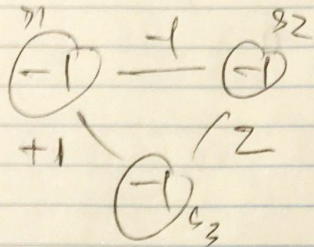 s1 -1 s2
-1 -1
+1 2
-1
s3